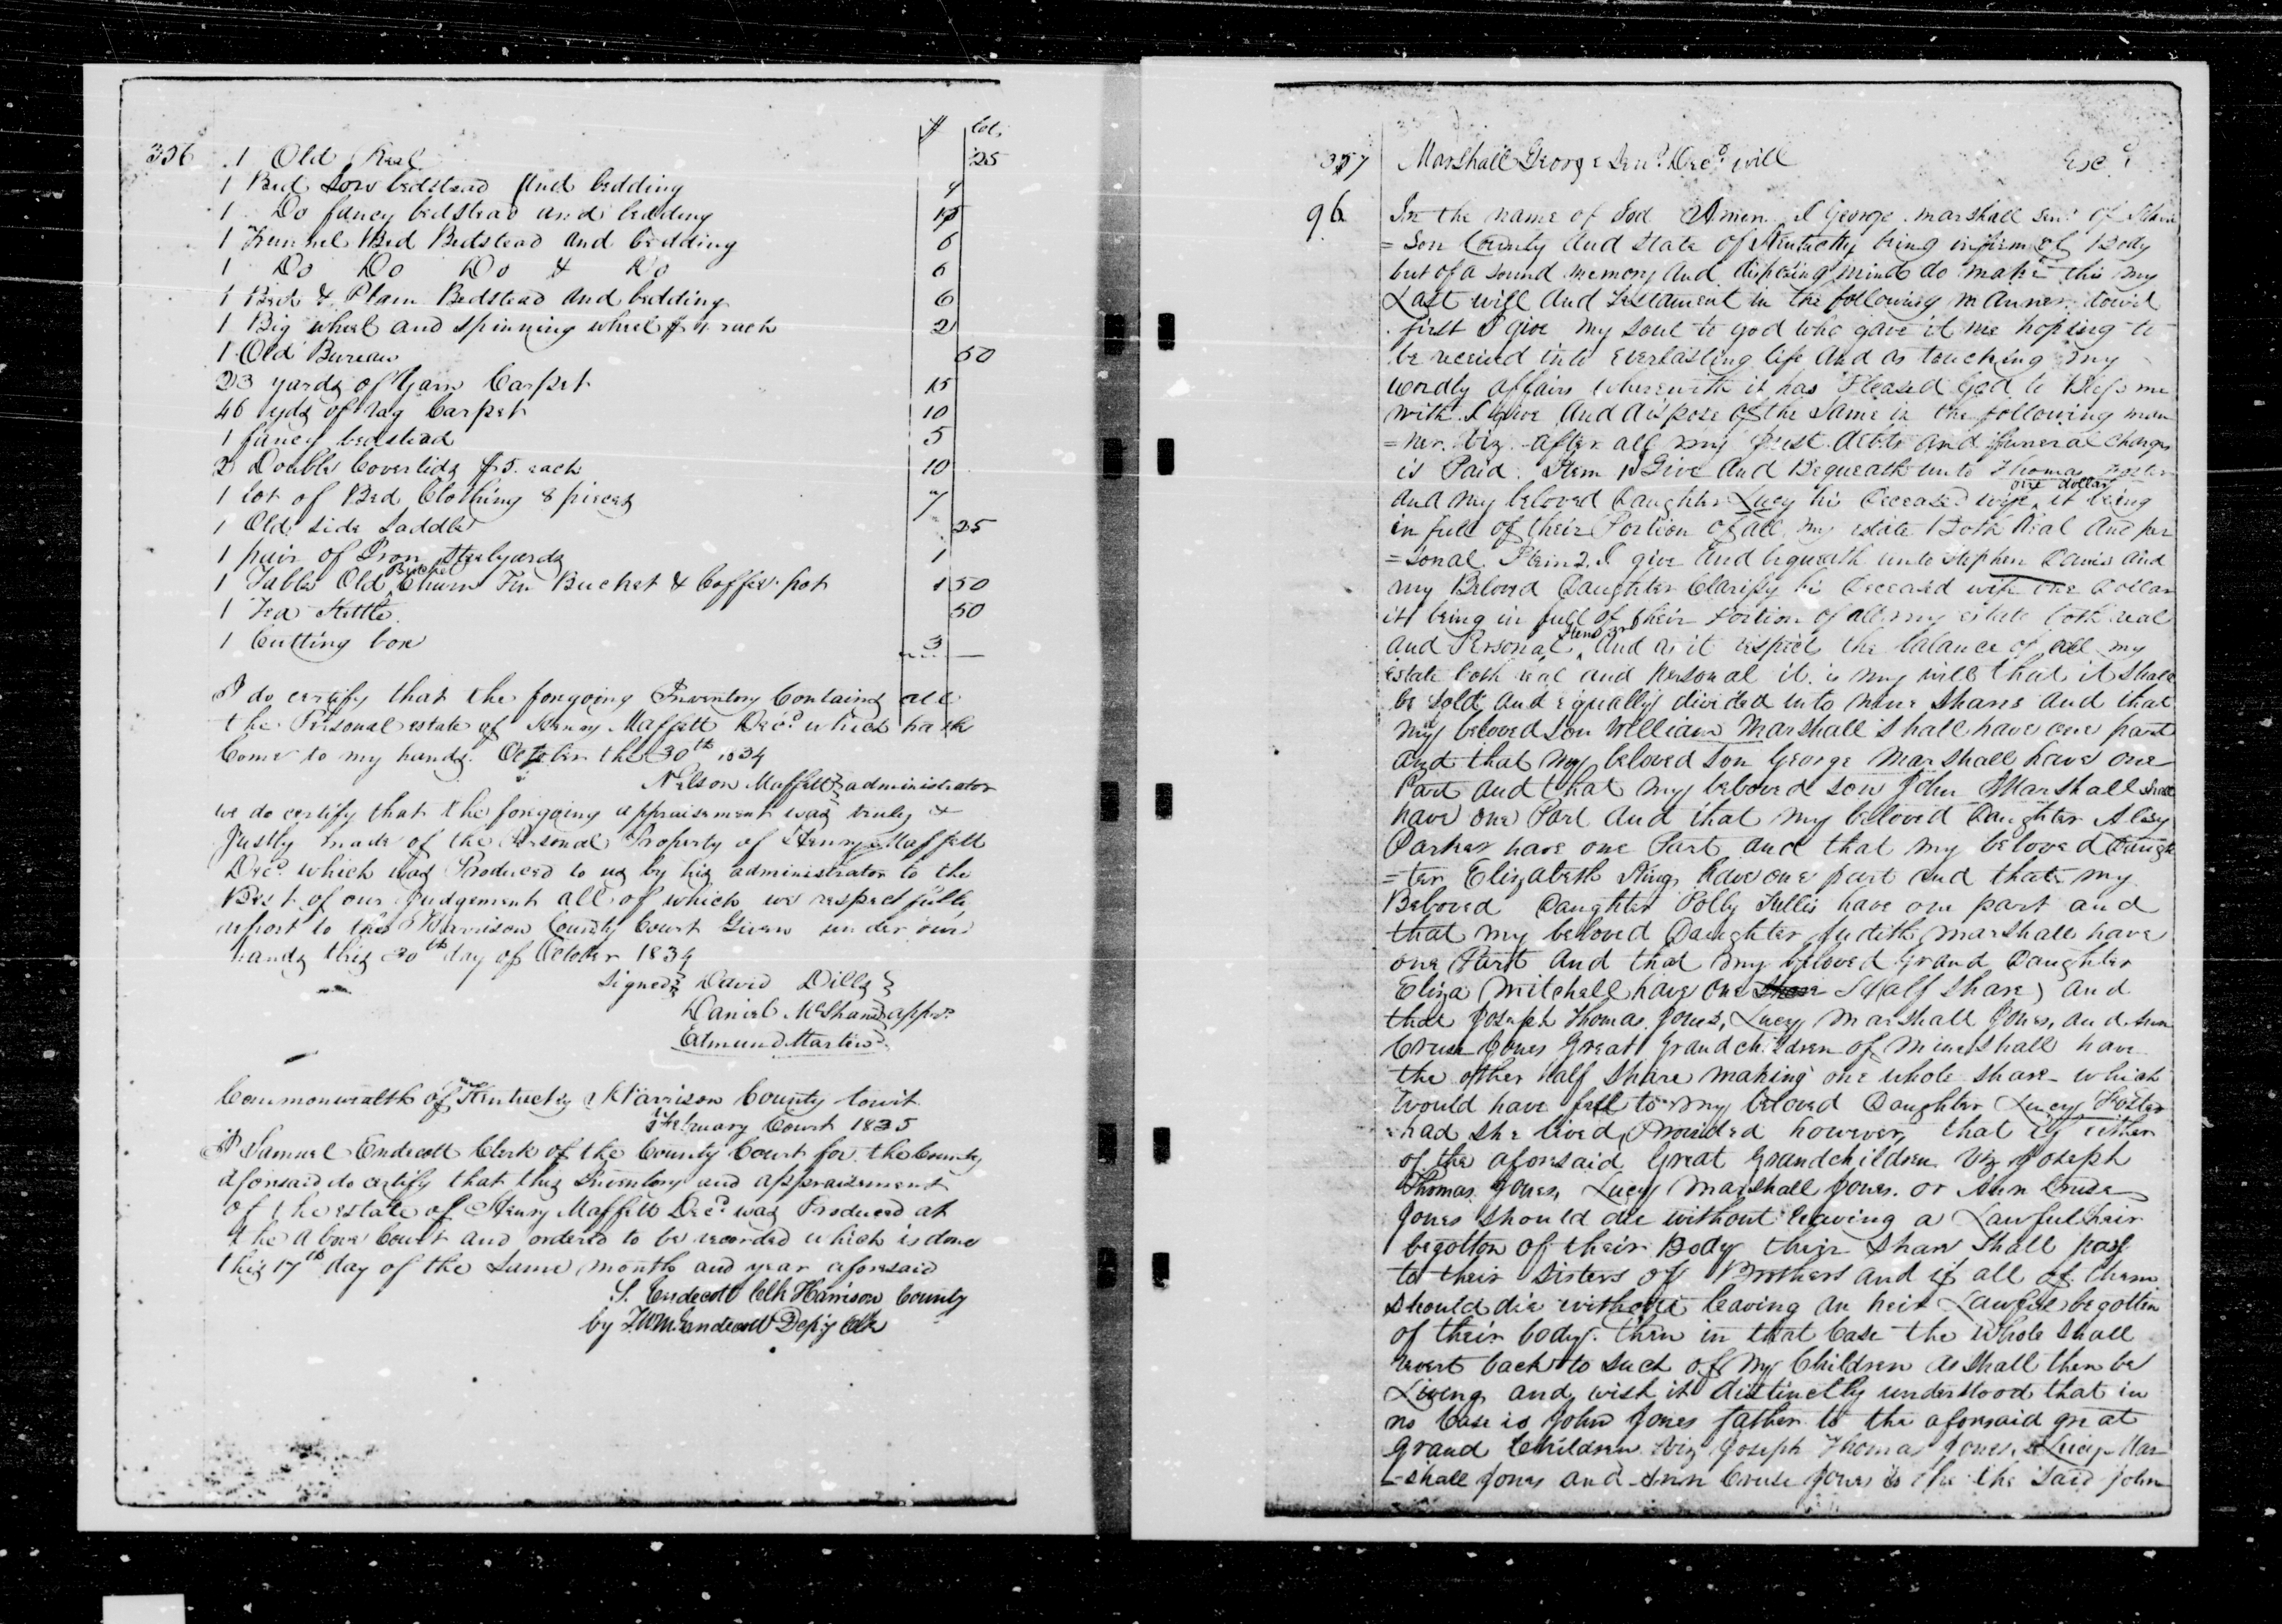 $ Cts.
336 1 Old Reel 25
1 Bed Low bedstead And bedding 4
1 Do fancy bedstead and bedding 15
1 Trunnel Bed Bedstead and bedding 6
1 Do Do Do & Do 6
1 Bed & Plain Bedstead and bedding 6
1 Big wheel and spinning wheel $1 each 2
1 Old Bureau 50
23 yards of Yarn Carpet 15
46 yds of rag Carpet 10
1 fancy bedstead 5
2 Double Coverlids $5. each 10
1 lot of Bed Clothing 8 pieces 7
1 Old side Saddle 25
1 pair of Iron Steelyards 1
1 Table Old Bucket Churn Tin Bucket & Coffee pot 1 50
1 Tea Kettle 50
1 Cutting box 3
I do certify that the foregoing Inventory Contains all
the Personal estate of Henry Maffett Decd. which hath
Come to my hands. October the 30th 1834
Nelson Maffett administrator
we do certify that the foregoing appraisement was truly &
Justly made of the Personal Property of Henry Maffett
Decd. which was Produced to us by his administrator to the
Best of our Judgement all of which we respectfully
report to the Harrison County Court Given under our
hands this 30th day of October 1834
Signed David Dills
Daniel McShane apprs.
Edmund Martin
Commonwealth of Kentucky Harrison County towit
February Court 1835
I Samuel Endecott Clerk of the County Court for the County
aforesaid do certify that this Inventory and appraisement
of the estate of Henry Maffett Decd. was Produced at
the above Court and ordered to be recorded which is done
this 17th day of the same month and year aforesaid
S. Endecott Clk Harrison County
by J.W.M. Endecott Depty Clk
337 Marshall George Senr. Decd. will Excd.
96 In the name of God Amen I George Marshall Senr. of Harri
=son County And State of Kentucky being infirm of Body
but of a sound memory and disposing mind do make this my
Last will And Testament in the following manner towit
first I give my soul to god who gave it me hoping to
be received into everlasting life And as touching my
wordly affairs wherewith it has Pleased God to Bless me
with I give And dispose of the same in the following man
=ner. Viz. after all my Just debts and funeral charges
is Paid. Item 1 I Give And Bequeath unto Thomas Foster
And my beloved Daughter Lucy his Deceased wife one dollar it being
in full of their Portion of all my estate Both Real And per
=sonal. Item 2. I give And bequeath unto Stephen Davis and
my Beloved Daughter Clarissy his Deceased wife one dollar
it being in full of their Portion of all my estate both real
and Personal Item 3rd And as it respects the balance of all my
estate both real and personal it is my will that it shall
be sold And equally divided into nine shares and that
my beloved Son William Marshall shall have one part
And that my beloved son George Marshall have one
Part And that my beloved son John Marshall shall
have one Part And that my beloved Daughter Alcey
Parker have one Part and that my beloved Daugh
=ter Elizabeth King have one part and that my
Beloved Daughter Polly Tullis have one part and
that my beloved Daughter Judith Marshall have
one Part And that my beloved Grand Daughter
Eliza Mitchell have one Share (Half Share) and
that Joseph Thomas Jones, Lucy Marshall Jones, and Ann
Cruse Jones Great Grandchildren of mine shall have
the other half share making one whole share which
would have fell to my beloved Daughter Lucy Foster
had she lived, Provided however, that if either
of the aforesaid Great Grandchildren Viz Joseph
Thomas Jones, Lucy Marshall Jones. or Ann Cruse
Jones should die without leaving a Lawful heir
begotton of their Body their share shall pass
to their sisters or Brothers and if all of them
should die without leaving an heir Lawfull begotten
of their body. then in that Case the whole shall
revert back to such of my Children as shall then be
Living, and wish it distinctly understood that in
no Case is John Jones father to the aforesaid great
grand Children Viz Joseph Thomas Jones, Lucy Mar
=shall Jones and Ann Cruse Jones is the the said John